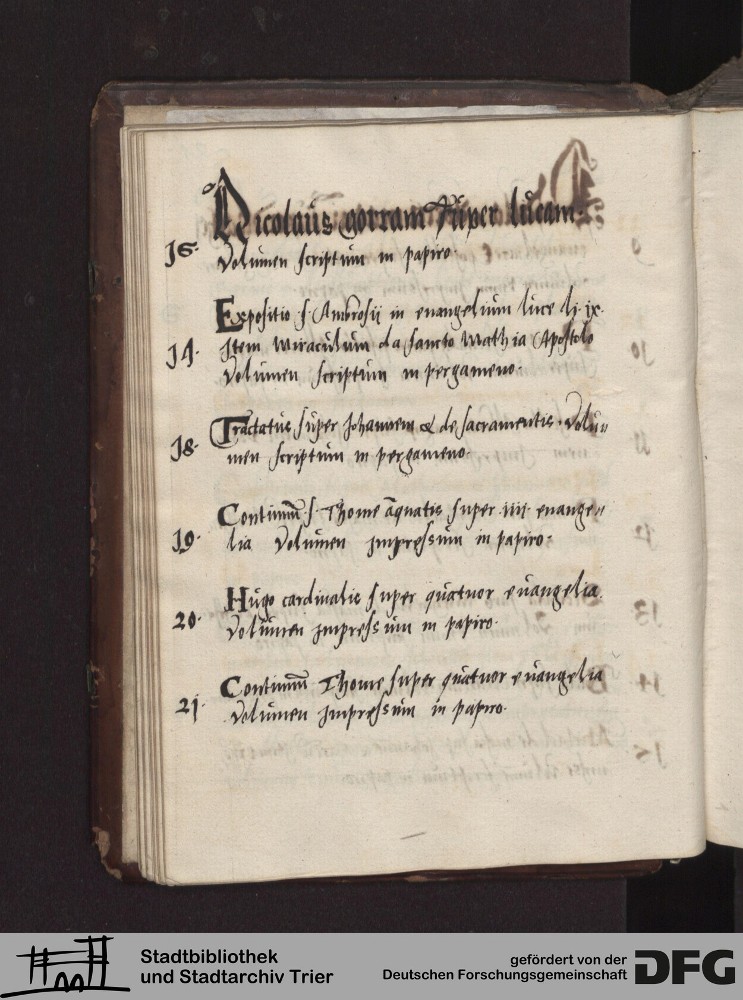 Nicolaus gorram super lucam.
16. Volumen scriptum in papiro.
Expositio s. Ambrosii in euangelium luce li. ix.
17. Item miraculum da sancto Mathia Apostolo
Volumen scriptum in pergameno.
18. Tractatus super Johannem & de sacramentis. Volu=
men scriptum in pergameno.
Continuum s. Thome aquatis super iiii. euange=
19. lia Volumen impressum in papiro.
Hugo cardinalis super quatuor euangelia.
20. Volumen impressum in papiro.
Continuum Thome super quatuor euangelia
21. Volumen impressum in papiro.
Stadtbibliothek
und Stadtarchiv Trier
gefördert von der
Deutschen Forschungsgemeinschaft
DFG